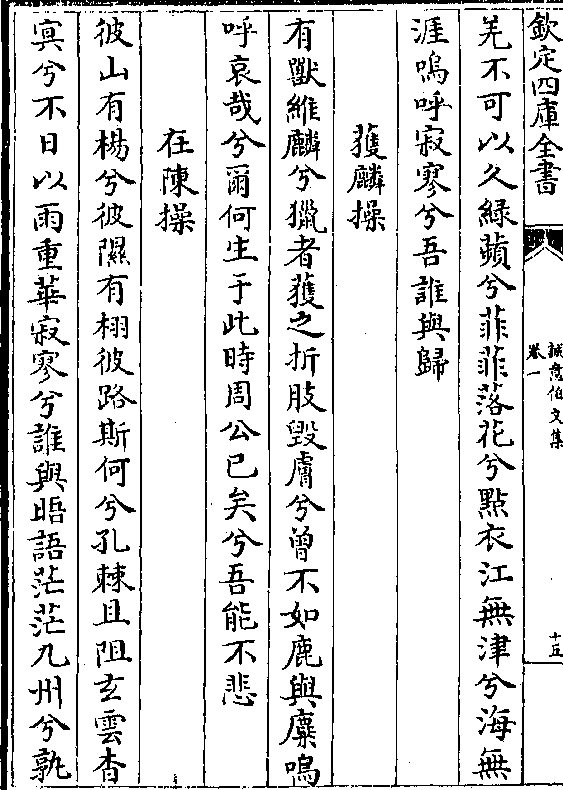 欽定四庫全書
誠意伯文集
卷一
十五
羌不可以久緑蘋兮菲菲落花兮點衣江無津兮海無
涯嗚呼寂寥兮吾誰與歸
獲麟操
有獸維麟兮獵者獲之折肢毀膚兮曽不如鹿與麋嗚
呼哀哉兮爾何生于此時周公已矣兮吾能不悲
在陳操
彼山有楊兮彼隰有栩彼路斯何兮孔棘且阻玄雲杳
㝠兮不日以雨重華寂寥兮誰與晤語茫茫九州兮孰